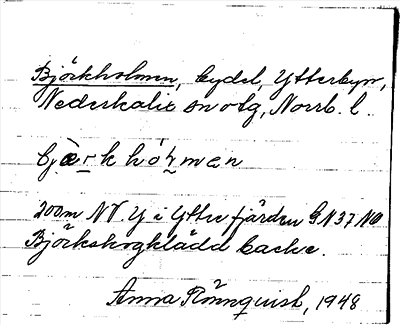 Björkholmen, bydel, Ytterbyn,
Nederkalix sn o tg, Norrb. l.
bjærkhólmen
200m NV. Y i Ytterfjärden G N37 NO
Björkskogklädd backe.
Anna Rönnquist, 1948